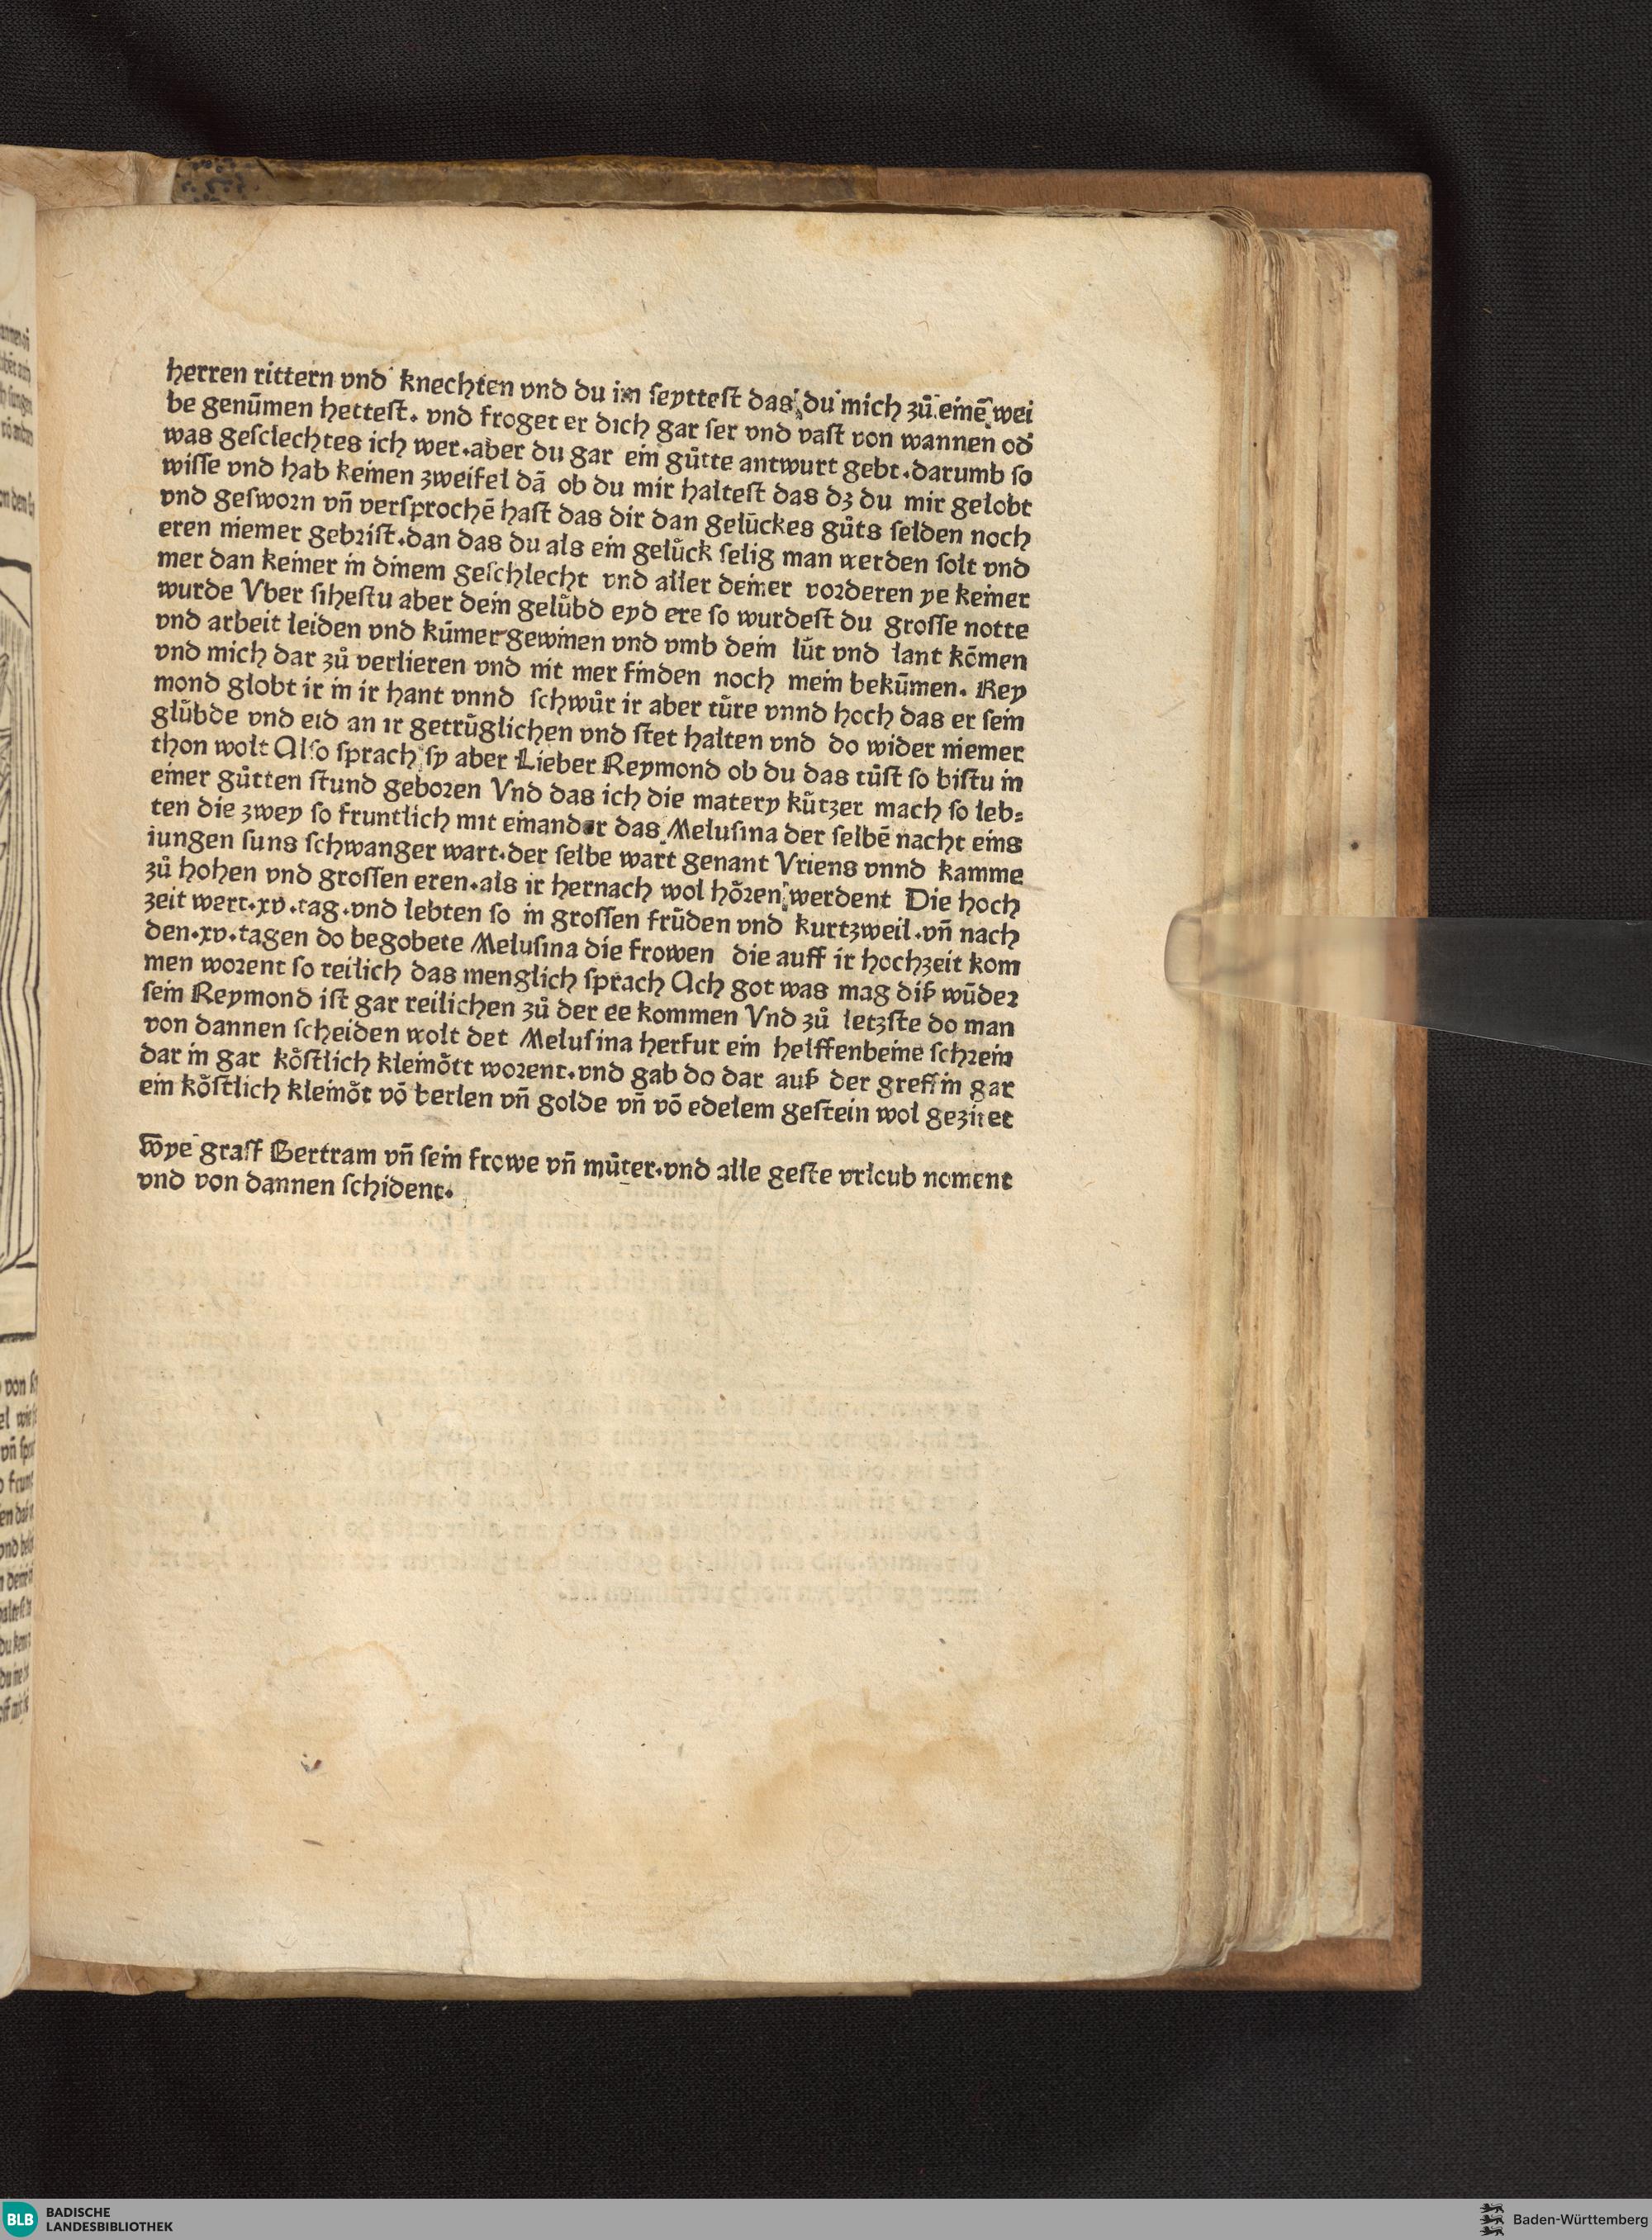 herren rittern vnd knechten vnd du im ſeyttest das du mich zů einē wei
be genūmen hettest. vnd froget er dich gar ſer vnd vaſt von wannen od
was geſclechtes ich wer.aber du gar ein gůtte antwurt gebt.darumb ſo
wiſſe vnd hab keinen zweifel dā ob du mir halteſt das dz du mir gelobt
vnd geſworn vn̄ verſprochē haſt das dir dan gelückes gůts ſelden noch
eren niemer gebriſt.dan das du als ein gelück ſelig man werden ſolt vnd
mer dan keiner in dinem geſchlecht vnd aller deiner vorderen ye keiner
wurde Vber ſiheſtu aber dein gelübd eyd ere ſo wurdeſt du groſſe notte
vnd arbeit leiden vnd kūmer gewinen vnd vmb dein lüt vnd lant kōmen
vnd mich dar zů verlieren vnd nit mer finden noch mein bekūmen. Rey
mond globt ir in ir hant vnnd ſchwůr ir aber türe vnnd hoch das er ſein
glübde vnd eid an ir getrüglichen vnd ſtet halten vnd do wider niemer
thon wolt Alſo ſprach ſy aber Lieber Reymond ob du das tůſt ſo biſtu in
einer gůtten ſtund geboren Vnd das ich die matery kürzer mach ſo leb⸗
ten die zwey ſo fruntlich mit einander das Meluſina der ſelbē nacht eins
iungen ſuns ſchwanger wart.der ſelbe wart genant Vriens vnnd kamme
zů hohen vnd groſſen eren.als ir hernach wol hören werdent Die hoch
zeit wert.xv.tag.vnd lebten ſo in groſſen früden vnd kurtzweil.vn̄ nach
den.xv.tagen do begobete Meluſina die frowen die auff ir hochzeit kom
men worent ſo reilich das menglich ſprach Ach got was mag diß wūder
ſein Reymond iſt gar reilichen zů der ee kommen Vnd zů letzſte do man
von dannen ſcheiden wolt det Meluſina herfur ein helffenbeine ſchrein
dar in gar köſtlich kleinött worent.vnd gab do dar auß der greffin gar
ein köſtlich kleinöt vō berlen vn̄ golde vn̄ vō edelem geſtein wol geziret
Wye graff Bertram vn̄ ſein frowe vn̄ můter.vnd alle geſte vrloub noment
vnd von dannen ſchident.
BLB BADISCHE
LANDESBIBLIOTHEK
Baden-Württemberg